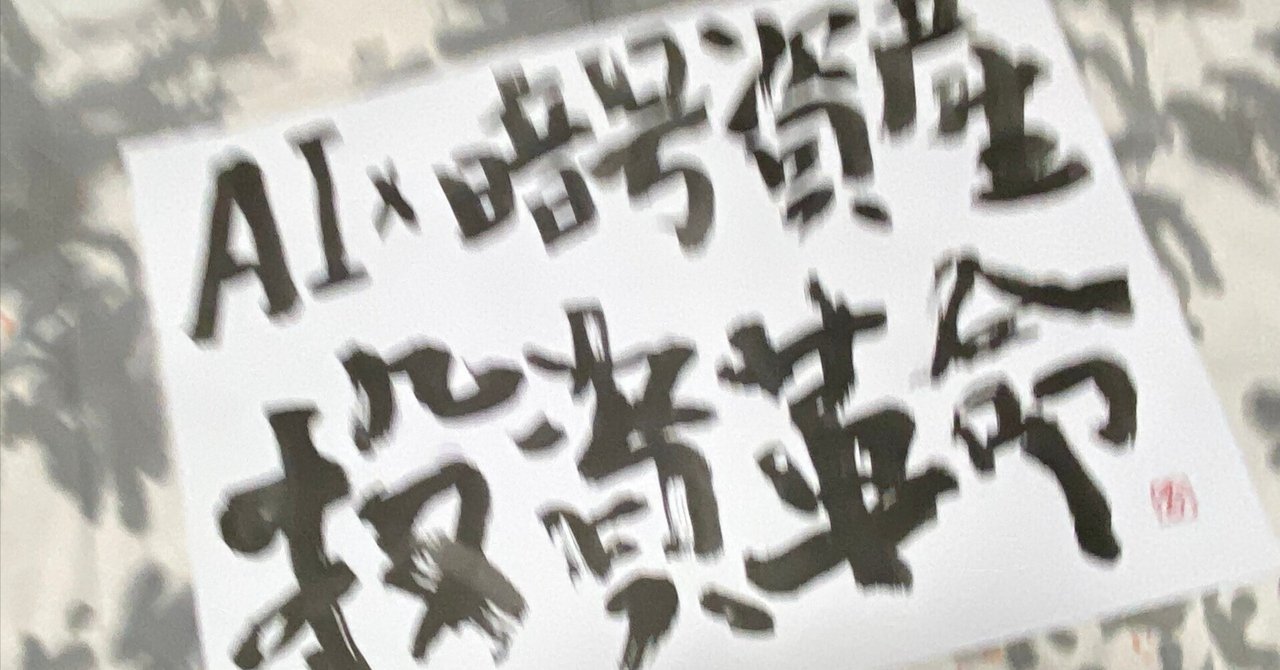 AI×暗号資産
投資革命